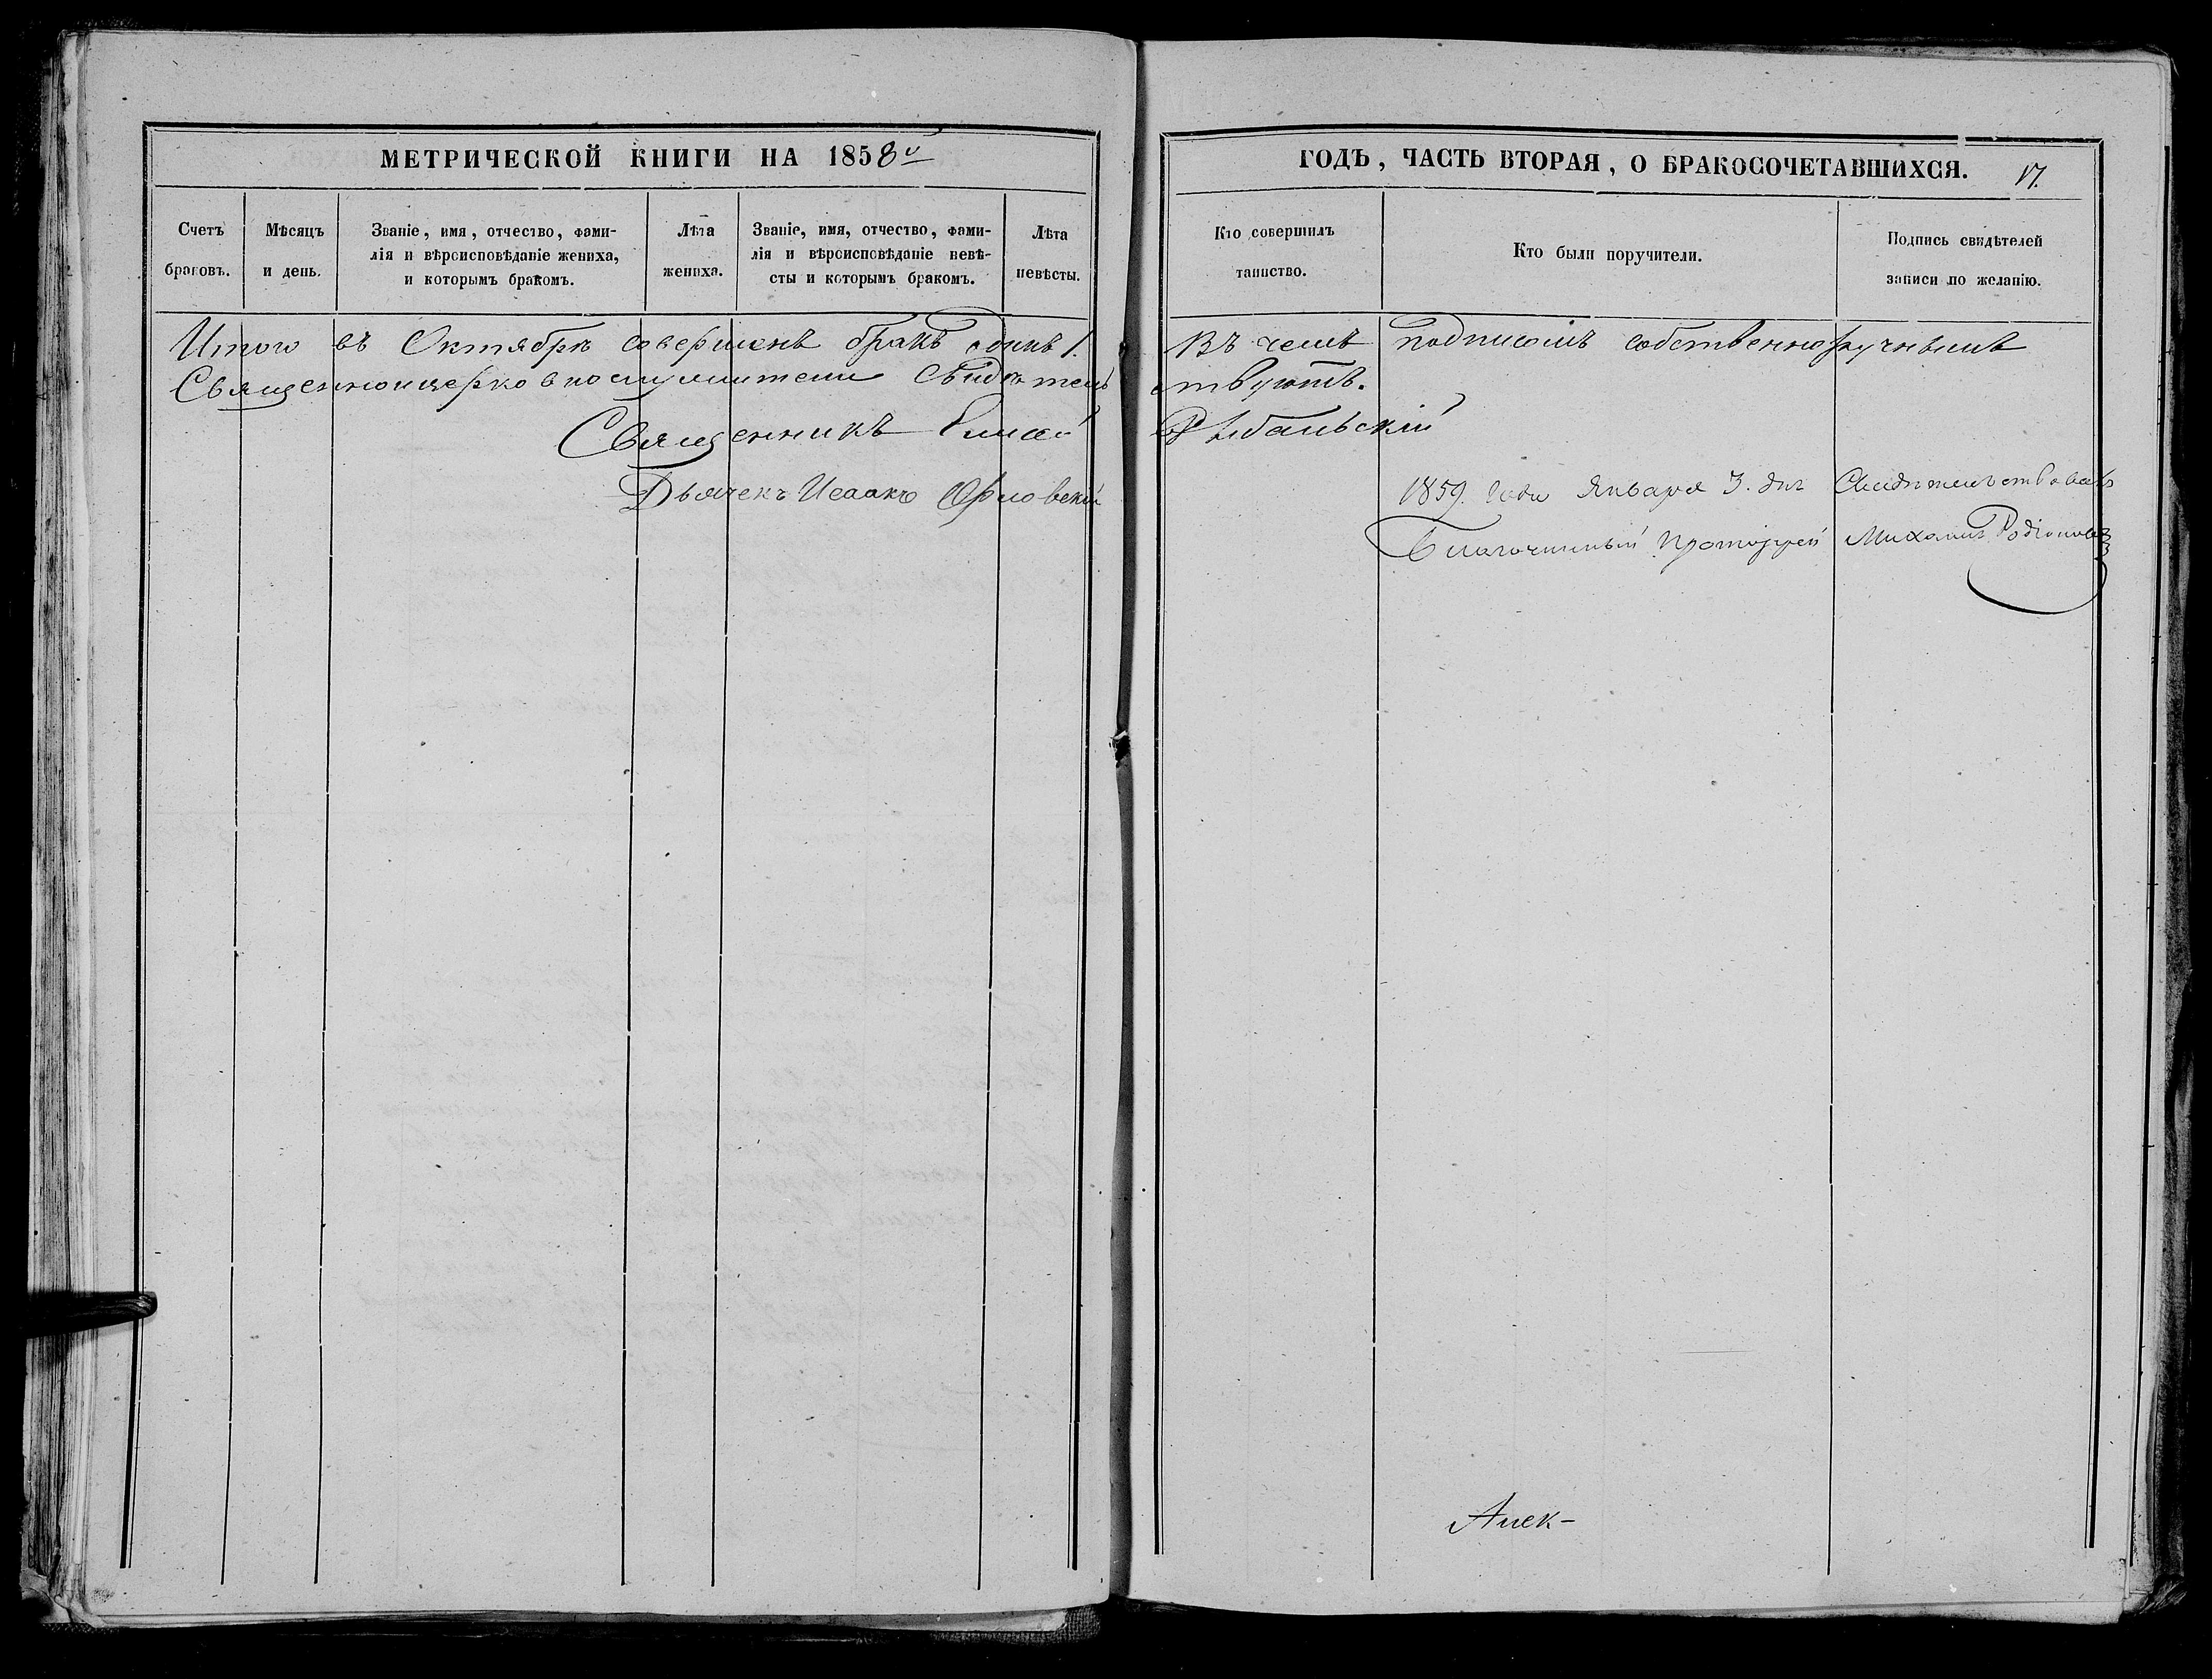 МЕТРИЧЕСКОЙ КНИГИ НА 1858й
Счетъ браковъ.
Мѣсяцъ и день.
Званіе, имя, отчество, фами-
лія и вѣроисповѣданіе жениха,
и которымъ бракомъ.
Лѣта жениха.
Званіе, имя, отчество, фами-
лія и вѣроисповѣданіе невѣ-
сты и которымъ бракомъ.
Лѣта невѣсты.
ГОДЪ, ЧАСТЬ ВТОРАЯ, О БРАКОСОЧЕТАВШИХСЯ.
17.
Кто совершилъ таинство.
Кто были поручители.
Подпись свидѣтелей
записи по желанію.
Итого въ Октябрѣ совершенъ бракъ одинъ 1. Въ чемъ подписомъ собственноручнымъ
Священноцерковнослужители свидѣтельствуютъ.
Священникъ Елисей
Дьячекъ Исаакъ Орловскій
1859. года Января 3. дня Свидѣтельствовалъ
Благочинный Протоіерей Михаилъ Родіоновъ
Алек-